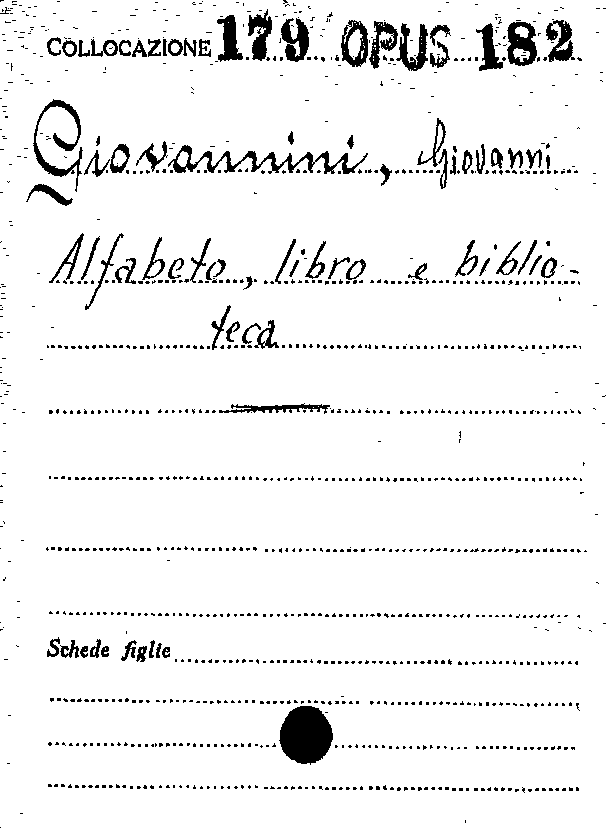 COLLOCAZIONE 179 OPUS 182
Giovannini, Giovanni
Alfabeto, libro e biblio-
teca
Schede figlie